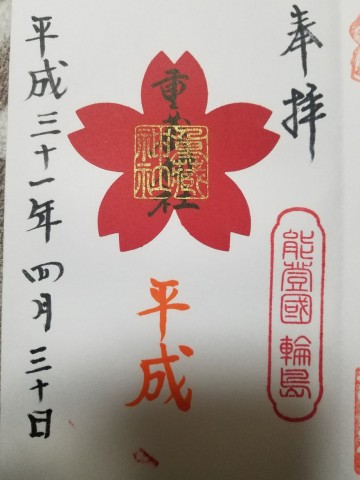 奉拝
能登國 輪島
重蔵神社
重蔵神社
平成
平成三十一年四月三十日